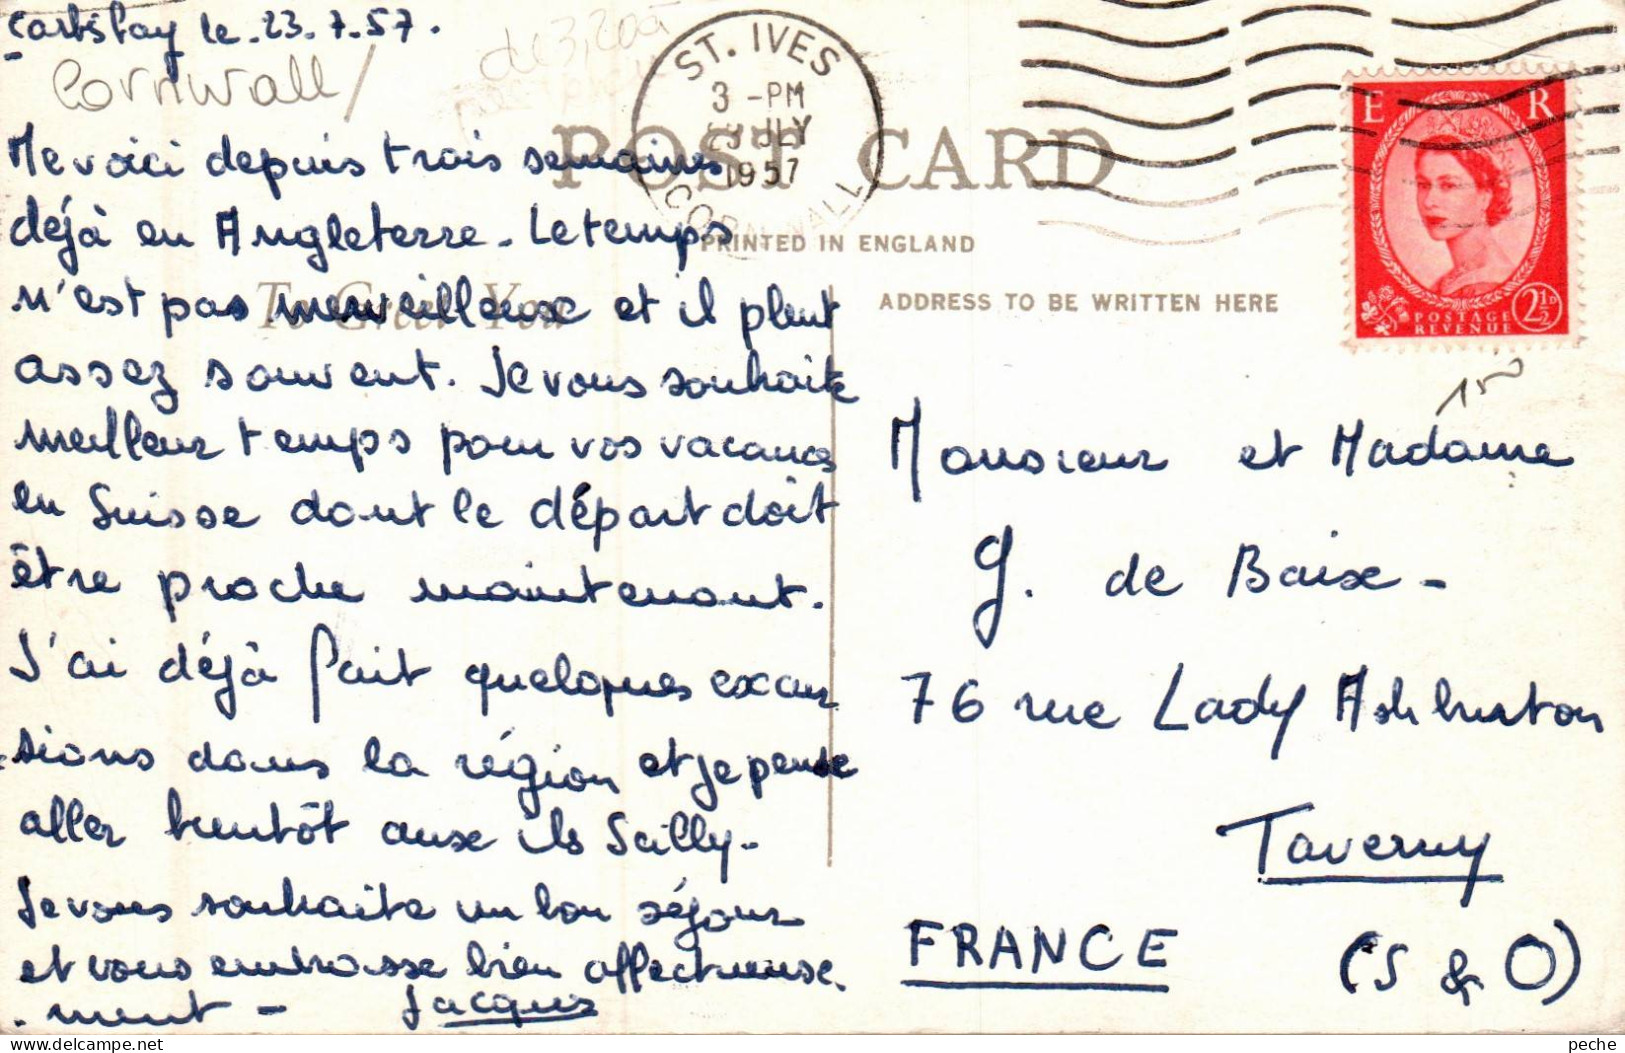 Carbis bay le. 23.7.57.
Cornwall/
Me voici depuis trois semaines
déjà en Angleterre. Le temps
n'est pas merveilleux et il pleut
assez souvent. Je vous souhaite
meilleur temps pour vos vacances
en Suisse dont le départ doit
être proche maintenant.
J'ai déjà fait quelques excur
sions dans la région et je pense
aller bientôt aux îles Scilly.
Je vous souhaite un bon séjour
et vous embrasse bien affectueuse.
.ment - Jacques
ST. IVES
3 -PM
23 JLY
1957
CORNWALL
POST CARD
PRINTED IN ENGLAND
To Greet You
ADDRESS TO BE WRITTEN HERE
E R
POSTAGE
REVENUE
2½D
150
Monsieur et Madame
G. de Baix -
76 rue Lady Ashburton
Taverny
FRANCE (S & O)
peche
www.delcampe.net